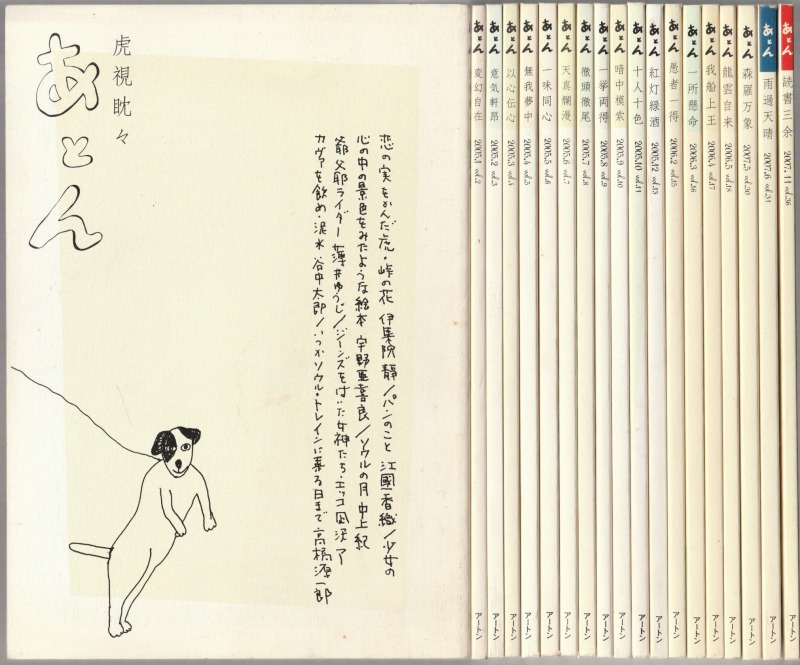 虎視眈々
あとん
恋の実をかんだ虎・峠の花 伊集院 靜/パンのこと 江國香織/少女の
心の中の景色をみたような絵本 宇野亜喜良/ソウルの月 中上 紀
ライダー 薄井ゆうじ/ジーンズをはいた女神たち・エッコ
カヴァを飲め・泥水 谷中太郎/いつかソウル・トレインに乗る日まで 高橋源一郎
あとん 変幻自在 2005.1 vol.2 アートン
あとん 意気軒昂 2005.2 vol.3 アートン
あとん 以心伝心 2005.3 vol.4 アートン
あとん 無我夢中 2005.4 vol.5 アートン
あとん 一味同心 2005.5 vol.6 アートン
あとん 天真爛漫 2005.6 vol.7 アートン
あとん 徹頭徹尾 2005.7 vol.8 アートン
あとん 一挙両得 2005.8 vol.9 アートン
あとん 暗中模索 2005.9 vol.10 アートン
あとん 十人十色 2005.10 vol.11 アートン
あとん 紅灯緑酒 2005.12 vol.13 アートン
あとん 愚者一得 2006.2 vol.15 アートン
あとん 一所懸命 2006.3 vol.16 アートン
あとん 我船上王 2006.4 vol.17 アートン
あとん 龍雲自来 2006.5 vol.18 アートン
あとん 森羅万象 2007.5 vol.30 アートン
あとん 雨過天晴 2007.6 vol.31 アートン
あとん 読書三余 2007.11 vol.36 アートン